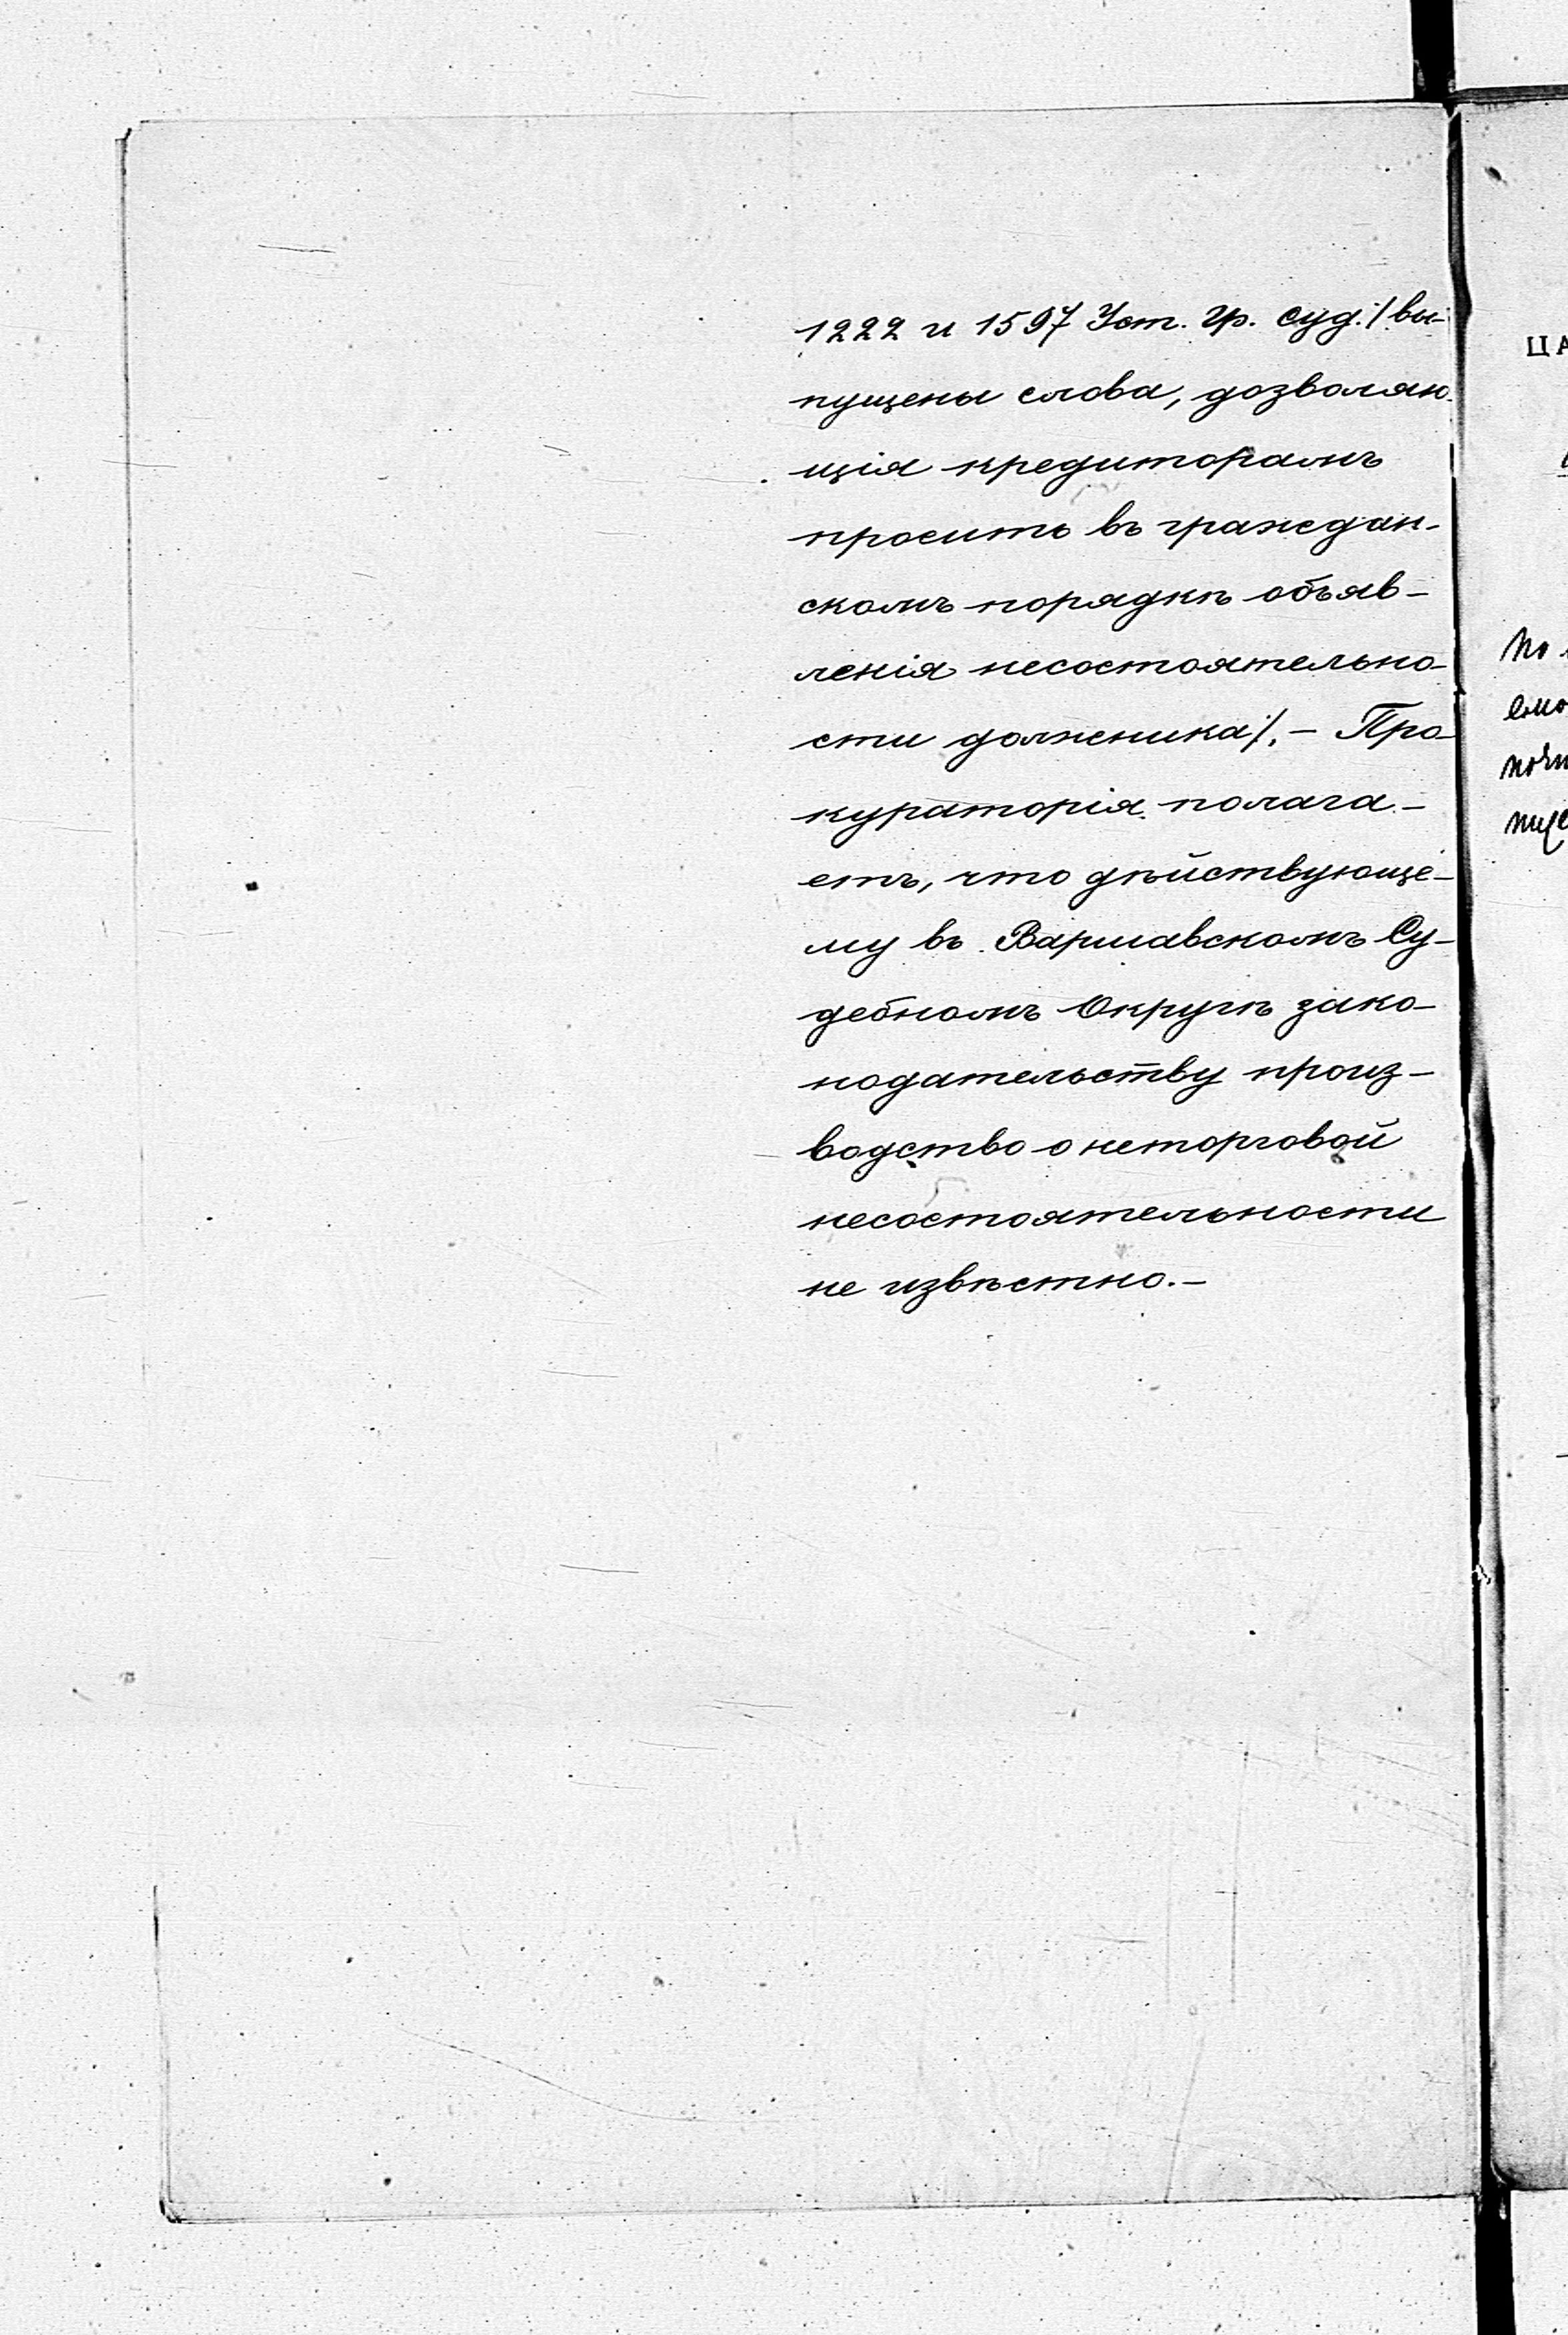 1222 и 1597 Уст. Гр. суд. /вы-
пущены слова, дозволяю-
щія кредиторамъ
просить въ граждан-
скомъ порядкѣ объяв-
ленія несостоятельно-
сти должника/. — Про-
кураторія полага-
етъ, что дѣйствующе-
му въ Варшавскомъ Су-
дебномъ Округѣ зако-
нодательству произ-
водство о неторговой
несостоятельности
не извѣстно. —
ЦА